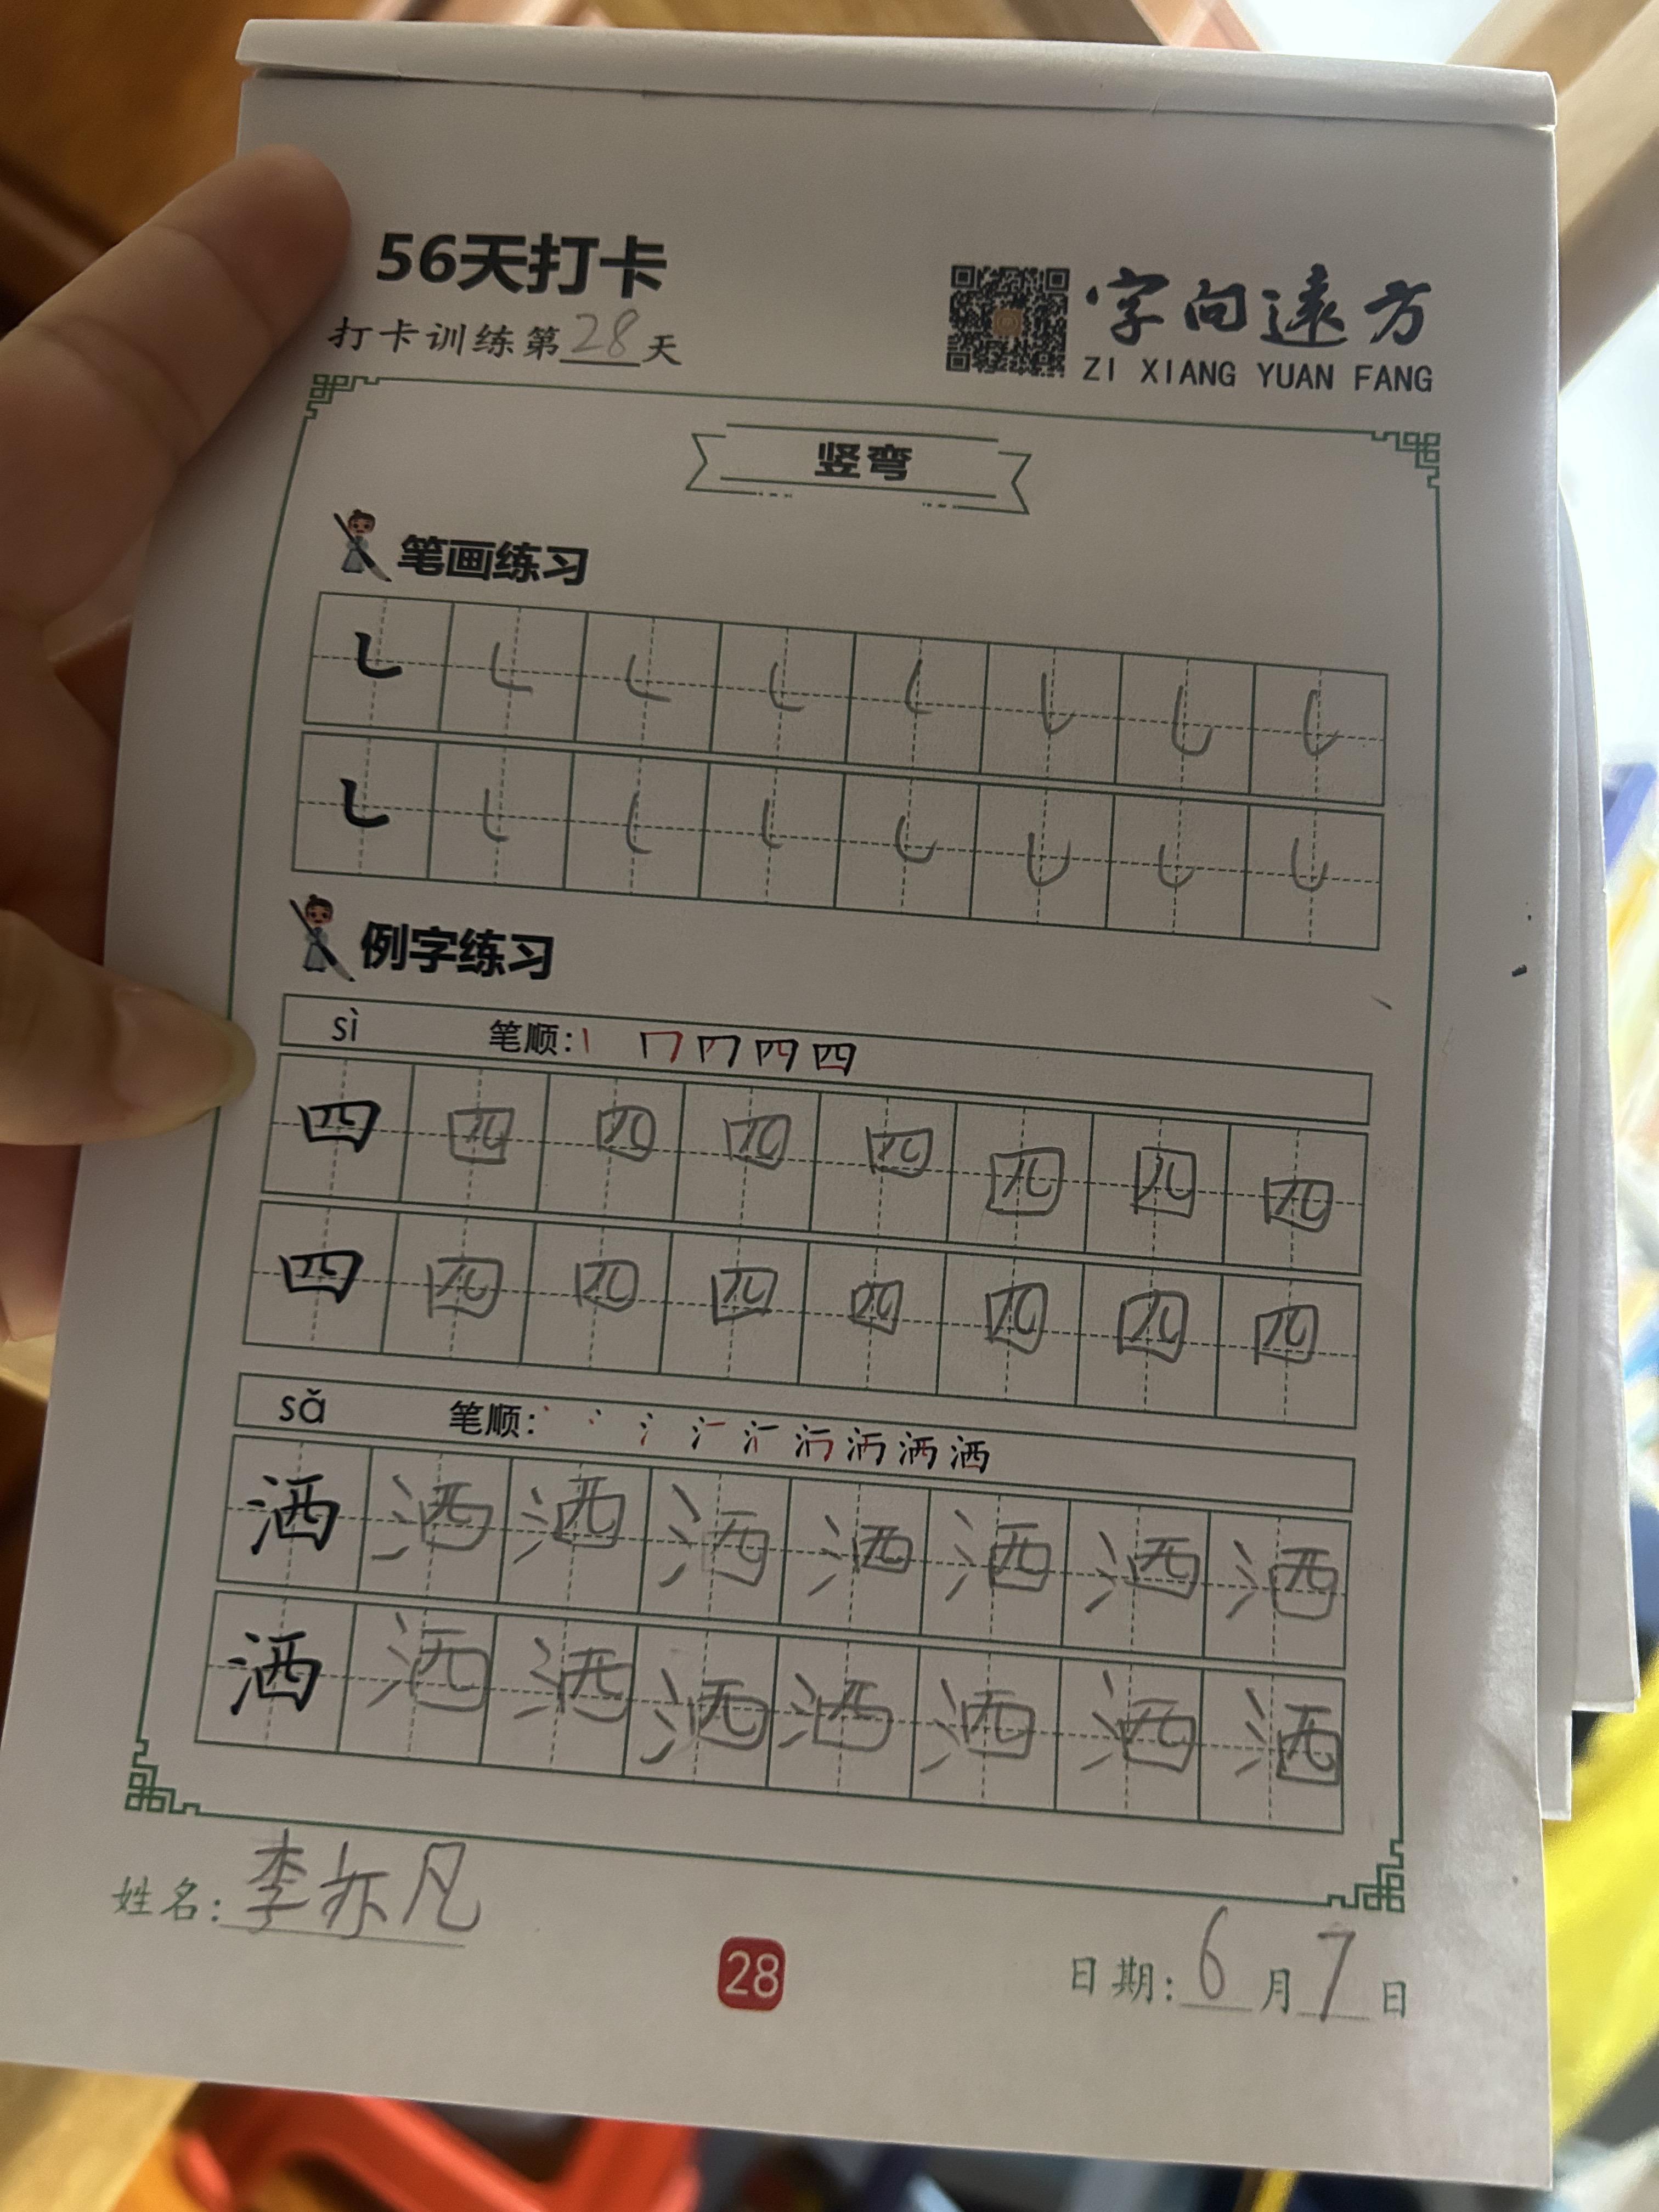 56天打卡
打卡训练第28天
字向遠方
ZI XIANG YUAN FANG
竖弯
笔画练习
㇄ ㇄ ㇄ ㇄ ㇄ ㇄ ㇄ ㇄
㇄ ㇄ ㇄ ㇄ ㇄ ㇄ ㇄ ㇄
例字练习
sì 笔顺:
四 四 四 四 四 四 四 四
四 四 四 四 四 四 四 四
sǎ 笔顺:
洒 洒 洒 洒 洒 洒 洒 洒
洒 洒 洒 洒 洒 洒 洒 洒
姓名:李亦凡
28
日期:6月7日